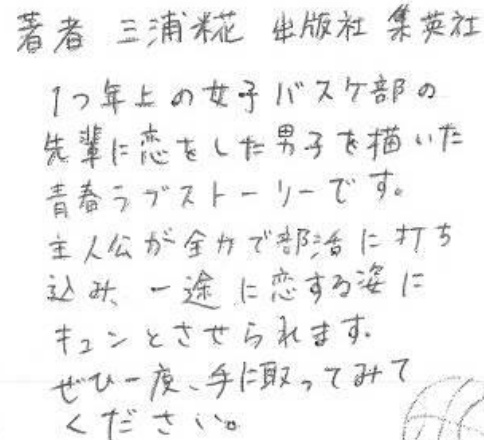 著者 三浦糀 出版社 集英社
1つ年上の女子バスケ部の
先輩に恋をした男子を描いた
青春ラブストーリーです。
主人公が全力で部活に打ち
込み、一途に恋する姿に
キュンとさせられます。
ぜひ一度、手に取ってみて
ください。